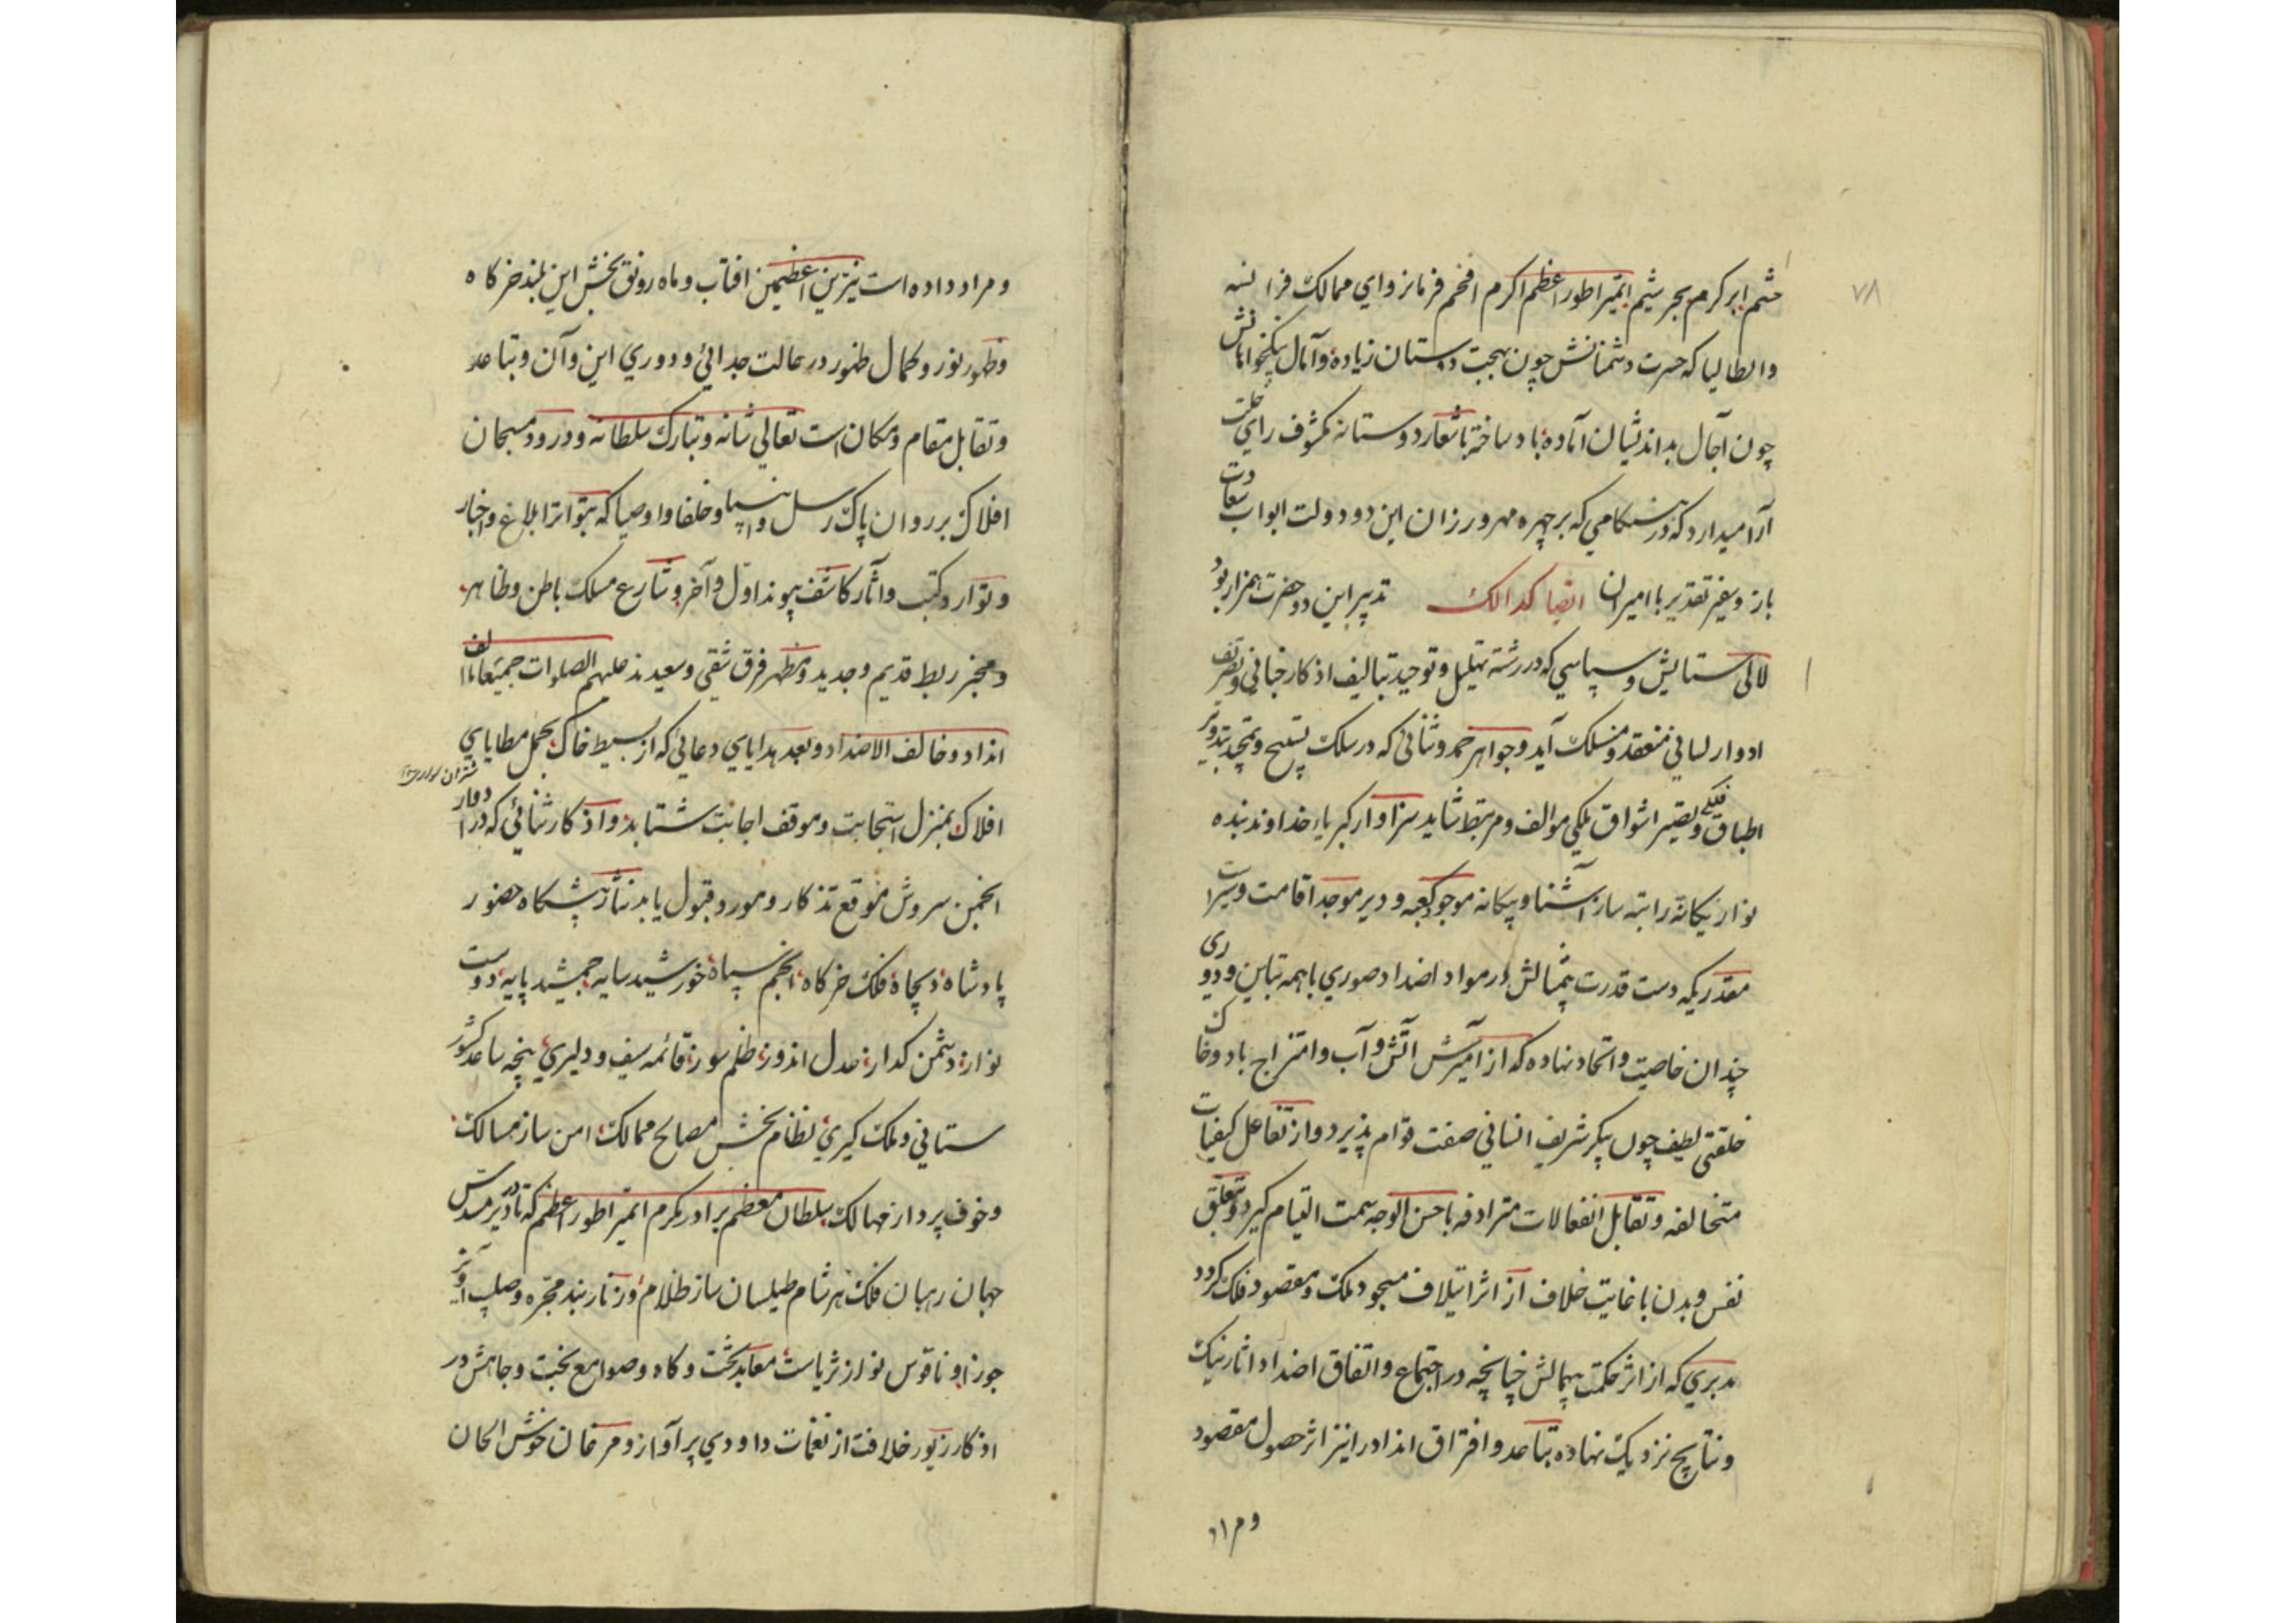 ۷۸
حشم ابر کرم بحر شیم ایمپراطور اعظم اکرم افخم فرمانروای ممالک فرانسه
و ایطالیا که حسرت دشمنانش چون بهجت دوستان زیاده و آمال نیکخواهانش
چون آجال بداندیشان آماده باد ساخته باشعار دوستانه مکشوف رای خلت
آرا میدارد که در هنگامی که بر چهره مهرورزان این دو دولت ابواب سعادت
باز و سفیر تقدیر با امیران ایضا کذالک تدبیر این دو حضرت همراز بود
لآلی ستایش و سپاسی که در رشته تهلیل و توحید بتالیف اذکار جنانی و تصرف
ادوار لسانی منعقد و منسلک آید و جواهر حمد و ثنائی که در سلک تسبیح و تمجید بتدویر
اطباق فلکی و تصییر اشواق ملکی موالف و مرتبط شاید سزاوار کبریاء خداوند بنده
نواز یگانه رابطه ساز آشنا و بیگانه موجود کعبه و دیر موجد اقامت و سیر است
مقدریکه دست قدرت بیمثالش در مواد اضداد صوری با همه تباین و دوری
چندان خاصیت و اتحاد نهاده که از آمیزش آتش و آب و امتزاج باد و خاک
خلقتی لطیف چون پیکر شریف انسانی صفت قوام پذیرد و از تفاعل کیفیات
متخالفه و تقابل انفعالات مترادفه باحسن الوجه سمت التیام گیرد و تعلق
نفس و بدن با غایت خلاف از اثر ایتلاف مسجود ملک و مقصود فلک گردد
مدبری که از اثر حکمت بیهمالش چنانچه در اجتماع و اتفاق اضداد اثار نیک
و نتایج نزدیک نهاده تباعد و افتراق انداد را نیز اثر حصول مقصود
و مراد
و مراد داده است نیرین اعظمین افتاب و ماه رونق بخش این بلند خرکاه
و ظهور نور و کمال ظهور در حالت جدائی و دوری این و آن و تباعد
و تقابل مقام و مکان است تعالی شانه و تبارک سلطانه و درود مسبحان
افلاک بر روان پاک رسل و انبیا و خلفا و اوصیا که بتواتر ابلاغ و اخبار
و توارد کتب و آثار کاشف پیوند اول و آخر و شارع مسلک باطن و ظاهر
و مخبر ربط قدیم و جدید و مظهر فرق شقی و سعیدند علیهم الصلوات جمیعا ما الف
انداد و خالف الاضداد و بعد هدایای دعائی که از بسیط خاک بحمل مطایای
افلاک بمنزل استجابت و موقف اجابت شتابد و اذکار ثنائی که در ادوار
انجمن سروش موقع تذکار و مورد قبول یابد نثار پیشکاه حضور
پادشاه دیجاه فلک خرکاه انجم سپاه خورشید سایه جمشید پایه دوست
نواز دشمن گداز عدل اندوز ظلم سوز قائمه سیف و دلیری پنجه ساعد کشور
ستانی و ملک گیری نظام بخش مصالح ممالک امن ساز مسالک
و خوف پرداز مهالک سلطان معظم برادر مکرم ایمپراطور اعظم که تا در دیر مسدس
جهان رهبان فلک هر شام طیلسان ساز ظلام و زنار بند مجره و صلیب آویز
جوزا و ناقوس نواز ثریاست معابد تخت و کاه و صوامع بخت و جاهش در
اذکار زبور خلافت از نغمات داودی پر آواز و مرغان خوش الحان